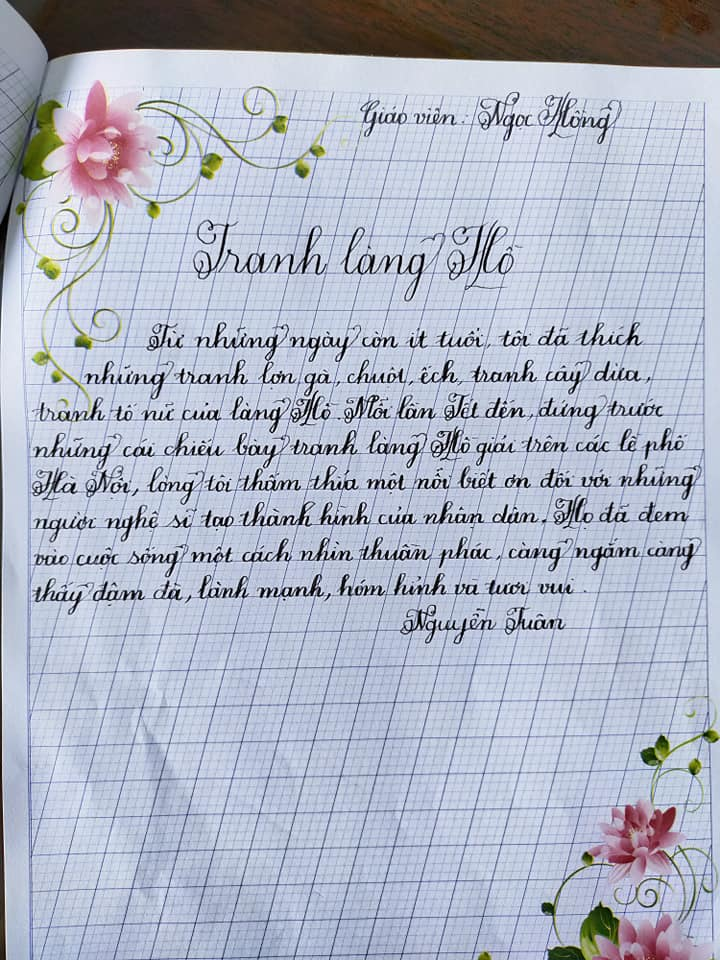 Giáo viên: Ngọc Hồng
Tranh làng Hồ
Từ những ngày còn ít tuổi, tôi đã thích
những tranh lợn gà, chuột, ếch, tranh cây dừa,
tranh tố nữ của làng Hồ. Mỗi lần Tết đến, đứng trước
những cái chiếu bày tranh làng Hồ giải trên các lề phố
Hà Nội, lòng tôi thấm thía một nỗi biết ơn đối với những
người nghệ sĩ tạo thành hình của nhân dân. Họ đã đem
vào cuộc sống một cách nhìn thuần phác, càng ngắm càng
thấy đậm đà, lành mạnh, hóm hỉnh và tươi vui.
Nguyễn Tuân